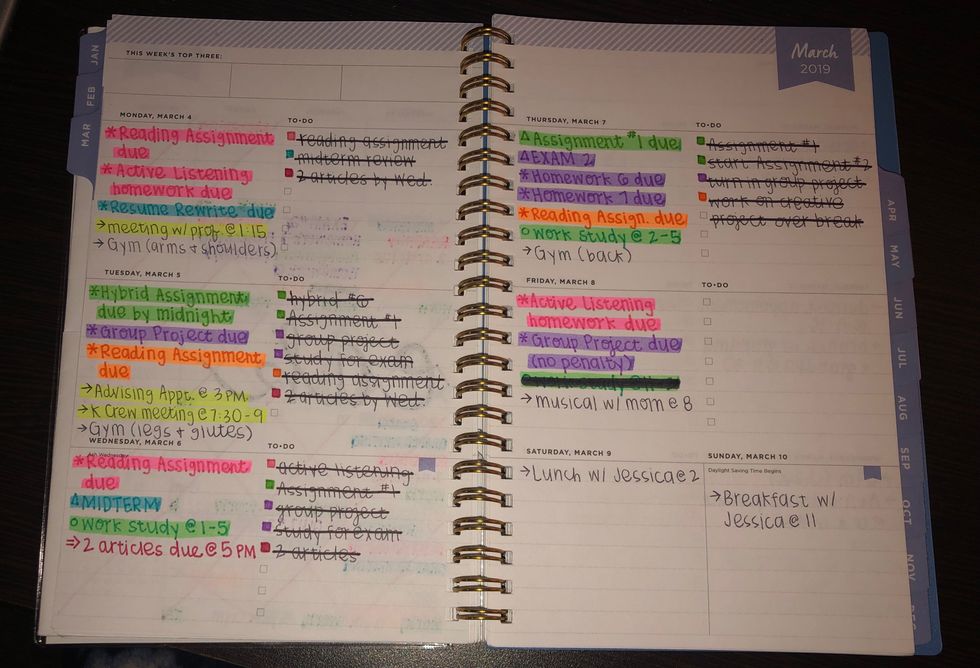 THIS WEEK'S TOP THREE:
MONDAY, MARCH 4
*Reading Assignment
due
*Active Listening
homework due
*Resume Rewrite due
→meeting w/prof @ 1:15
→Gym (arms + shoulders)
TO•DO
reading assignment
midterm review
2 articles by Wed.
TUESDAY, MARCH 5
*Hybrid Assignment
due by midnight
*Group Project due
*Reading Assignment
due
→Advising Appt. @ 3 PM
→K Crew meeting @ 7:30-9
→Gym (legs + glutes)
TO•DO
hybrid #6
Assignment #1
group project
study for exam
reading assignment
2 articles by Wed.
WEDNESDAY, MARCH 6
*Reading Assignment
due
△MIDTERM
○work study @ 1-5
⇒2 articles due @ 5 PM
TO•DO
active listening
Assignment #1
group project
study for exam
2 articles
March
2019
THURSDAY, MARCH 7
△Assignment #1 due
△EXAM 2
*Homework 6 due
*Homework 7 due
*Reading Assign. due
○work study @ 2-5
→Gym (back)
TO•DO
Assignment #1
start Assignment #2
turn in group project
work on creative
project over break
FRIDAY, MARCH 8
*Active Listening
homework due
*Group Project due
(no penalty)
→musical w/ mom @ 8
TO•DO
SATURDAY, MARCH 9
→Lunch w/ Jessica @ 2
SUNDAY, MARCH 10
Daylight Saving Time Begins
→Breakfast w/
Jessica @ 11
JAN
FEB
MAR
APR
MAY
JUN
JUL
AUG
SEP
OCT
NOV